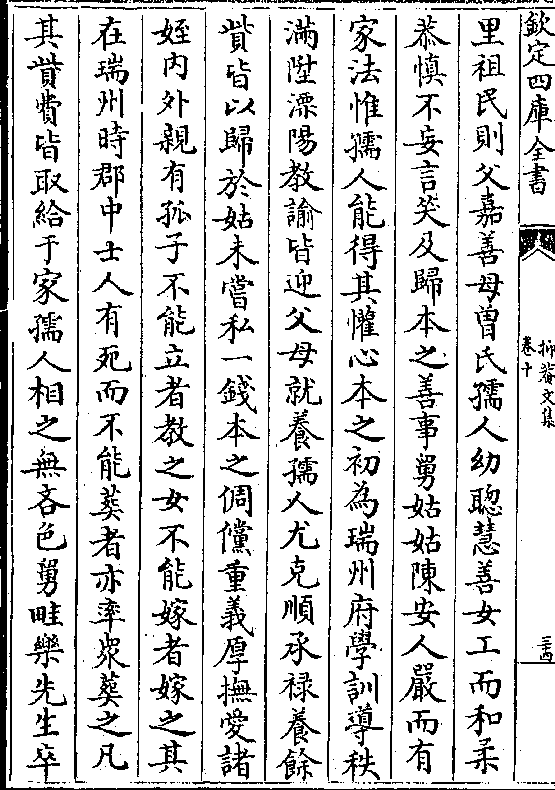 欽定四庫全書
抑菴文集
卷十
三十四
里祖民則父嘉善母曾氏孺人幼聰慧善女工而和柔
恭慎不妄言笑及歸本之善事舅姑姑陳安人嚴而有
家法惟孺人能得其懽心本之初為瑞州府學訓導秩
滿陞溧陽教諭皆迎父母就養孺人尤克順承禄養餘
貲皆以歸於姑未嘗私一錢本之倜儻重義厚撫愛諸
姪内外親有孤子不能立者教之女不能嫁者嫁之其
在瑞州時郡中士人有死而不能葬者亦率衆葬之凡
其貲費皆取給于家孺人相之無吝色舅畦樂先生卒